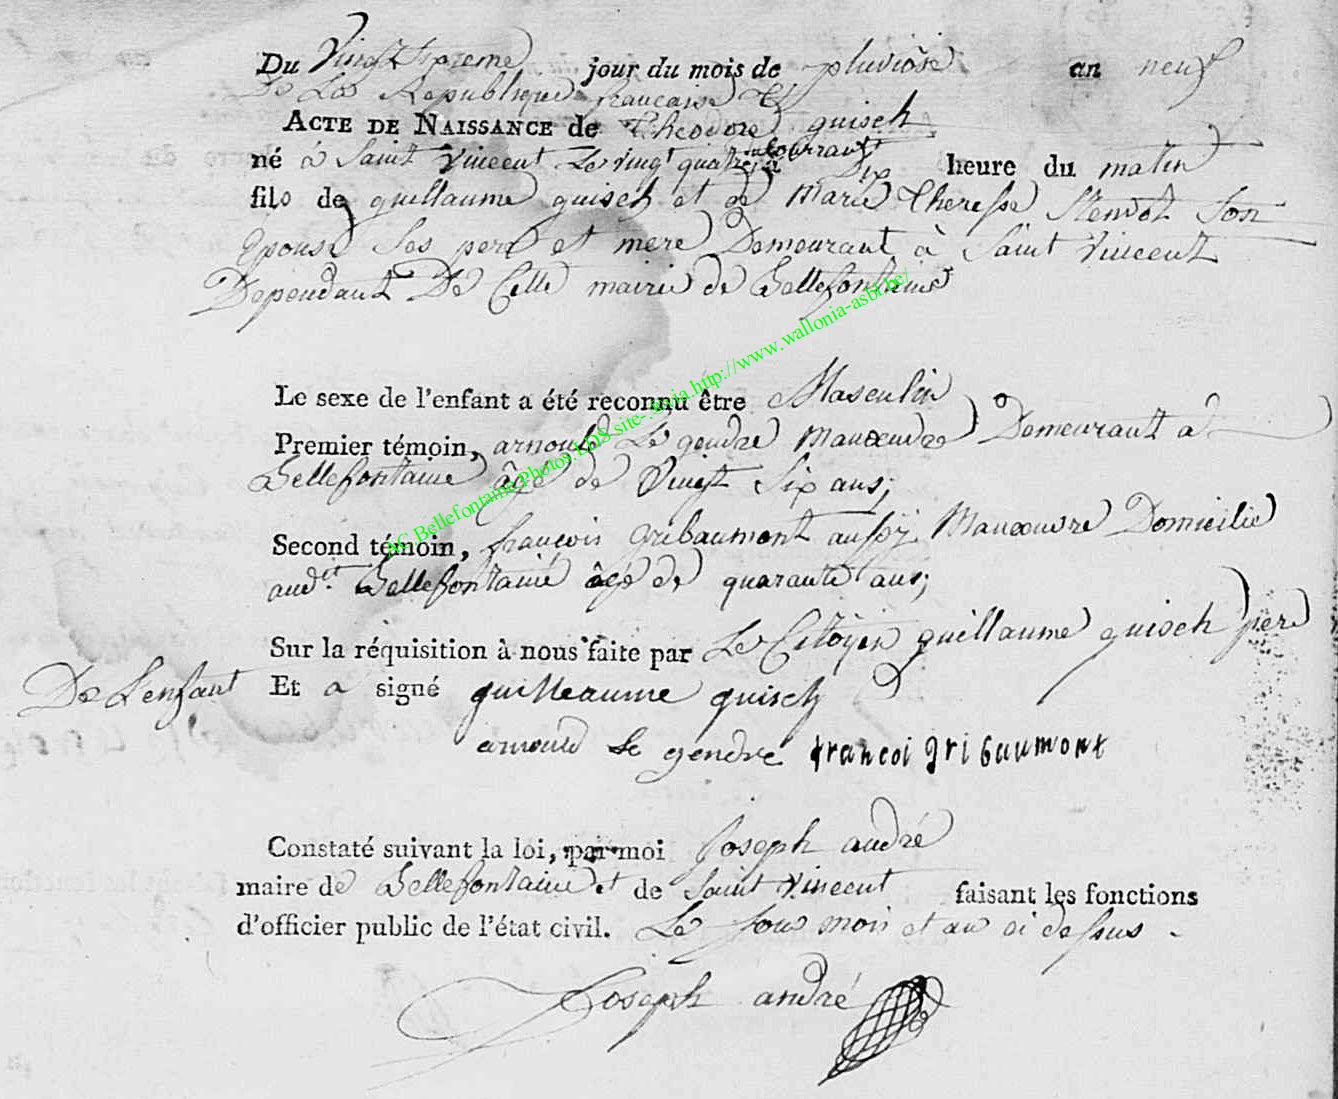 Du Vingt sixieme jour du mois de pluviôse an neuf
De La Republique francaise
ACTE DE NAISSANCE de Theodore guisch
né à Saint Vincent Le vingt quatre du Courrant Dix heure du matin
fils de guillaume guisch et de Marie Theresse son
Epouse Ses pere et mere Demeurant à Saint Vincent
Dependant De Cette mairie de Bellefontaine
Le sexe de l'enfant a été reconnu être Masculin
Premier témoin, arnould Le gendre Manœuvre Demeurant a
Bellefontaine âgé de Vingt Six ans;
Second témoin, francois gribaumont aussÿ Manœuvre Domicilié
aud.et Bellefontaine âgé de quarante ans;
Sur la réquisition à nous faite par Le Citoÿen guillaume guisch pere
De L'enfant Et a signé guilleaume guisch
arnould le gendre francoi gribaumont
Constaté suivant la loi, par moi Joseph andré
maire de Bellefontaine et de Saint Vincent faisant les fonctions
d'officier public de l'état civil. Le Jour mois et an ci dessus
Joseph andré
AC Bellefontaine Photos LDS site http://www.wallonia-asbl.be/